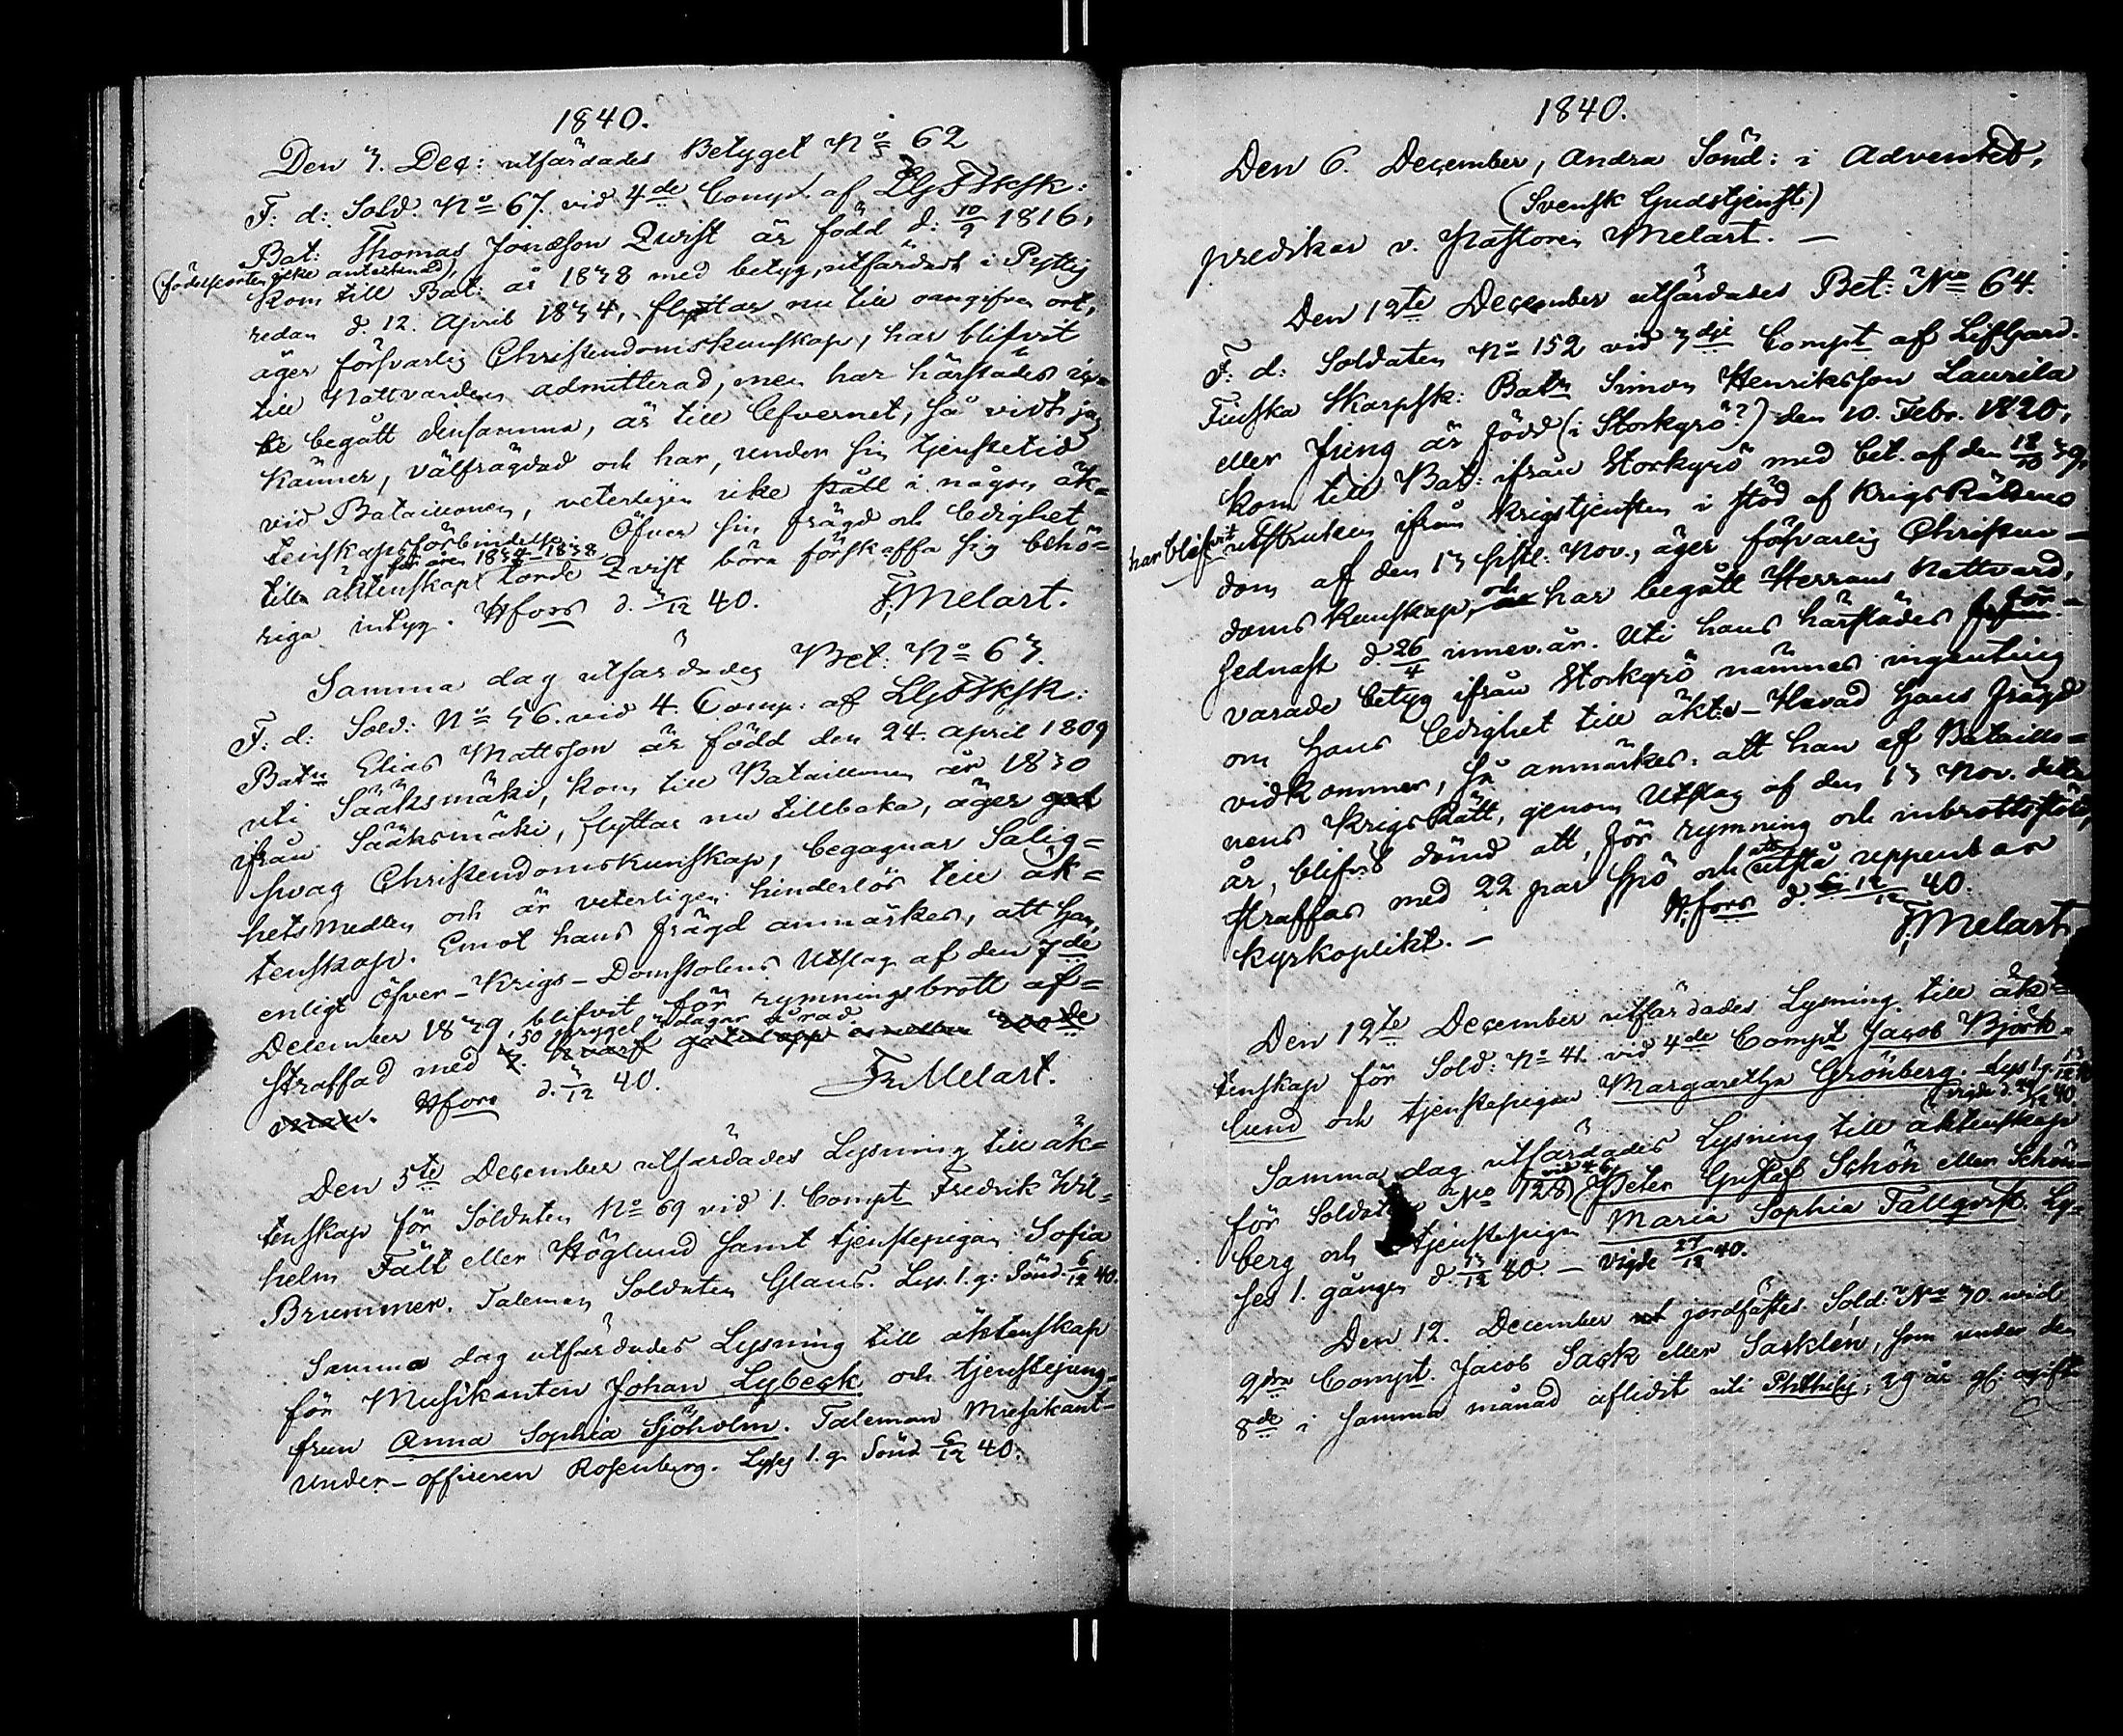 1840.
Den 3. Dec: utfärdades Betyget No 62
F: d: Sold: No 67. vid 4de Comp. af LGFSkSk:
Bat: Thomas Jonasson Qvist är född d: 10/9 1816,
(födelseorten icke antecknad),
kom till Bat: år 1838 med betyg, utfärdadt i Pyttis
redan d. 12. April 1834, flyttar nu till oangifven ort,
äger försvarlig Christendomskunskap, har blifvit
till Nattvarden admitterad, men har härstädes ic-
ke begått densamma, är till Lefvernet, så vidt jag
känner, välfrägdad och har, under sin tjenstetid
vid Bataillonen, veterligen icke trädt i någon äk-
tenskapsförbindelse. Öfver sin frägd och ledighet
till äktenskap för åren 1834-1838 torde Qvist böra förskaffa sig behö-
riga intyg. Hfors d. 3/12 40. F. Melart.
Samma dag utfärdades Bet: No 63.
F: d: Sold: No 56. vid 4. Comp: af LGFSkSk:
Batn Elias Mattsson är född den 24. april 1809
uti Sääksmäki, kom till Bataillonen år 1830
ifrån Sääksmäki, flyttar nu tillbaka, äger god
svag Christendomskunskap, begagnar Salig-
hetsmedlen och är veterligen hinderlös till äk-
tenskap. Emot hans frägd anmärkes, att han,
enligt Öfver-Krigs-Domstolens Utslag af den 7de
December 1839, blifvit för rymningsbrott af-
50 sprygel 3 dagar å rad
straffad med 4. hvarf gatulopp emellan 200de
man. Hfors d. 3/12 40. Fr. Melart.
Den 5te December utfärdades Lysning till äk-
tenskap för Soldaten No 69 vid 1. Compt Fredrik Wil-
helm Fält eller Höglund samt tjenstepigan Sofia
Brummer. Taleman Soldaten Glans. Lys. 1. g: Sönd. 6/12 40.
Samma dag utfärdades Lysning till äktenskap
för Musikanten Johan Lybeck och tjenstejung-
frun Anna Sophia Sjöholm. Taleman Musikant-
Under-officeren Rosenberg. Lyses 1. g. Sönd 6/12 40.
1840.
Den 6. December, Andra Sönd: i Adventet,
(Svensk Gudstjenst)
predikar v. Pastoren Melart. —
Den 12te December utfärdades Bet: No 64.
F: d: Soldaten No 152 vid 3dje Compt af LifGard.
Finska Skarpsk: Batn Simon Henriksson Laurila
eller Jring är född (i Storkyrö?) den 10. Febr. 1820,
kom till Bat: ifrån Storkyrö med bet. af den 12/10 39,
har blifvit utstruken ifrån krigstjensten i stöd af KrigsRättens
dom af den 13 sistl: Nov., äger försvarlig Christen-
doms kunskap, och har begått Herrans Nattvard,
sednast d. 26/4 innev. år. Uti hans härstädes för-
varade betyg ifrån Storkyrö nämnes ingenting
om hans ledighet till äkt:p – Hvad hans frägd
vidkommer, så anmärkes: att han af Bataillo-
nens KrigsRätt, genom Utslag af den 13 Nov. detta
år, blifvit dömd att, för rymning och inbrottsstöld,
straffas med 22 par spö och att utstå uppenbar
kyrkoplikt. — Hfors d. 12/12 40.
F. Melart
Den 12te December utfärdades Lysning till äk-
tenskap för Sold: No 41. vid 4de Compt Jacob Björk-
lund och tjenstepigan Margaretha Grönberg. Lys 1. g. 13/12 40
Samma dag utfärdades Lysning till äktenskap
för Soldaten No 128 vid 4de Peter Gustaf Schön eller Schön-
berg och tjenstepigan Maria Sophia Tallqvist. Ly-
ses 1. gången d. 13/12 40. — Vigde 27/12 40.
Den 12. December jordfästes Sold: No 70. wid
2dra Compt. Jacob Sack eller Sacklén, som under den
8de i samma månad aflidit uti Phthisis; 29 år gl: ogift